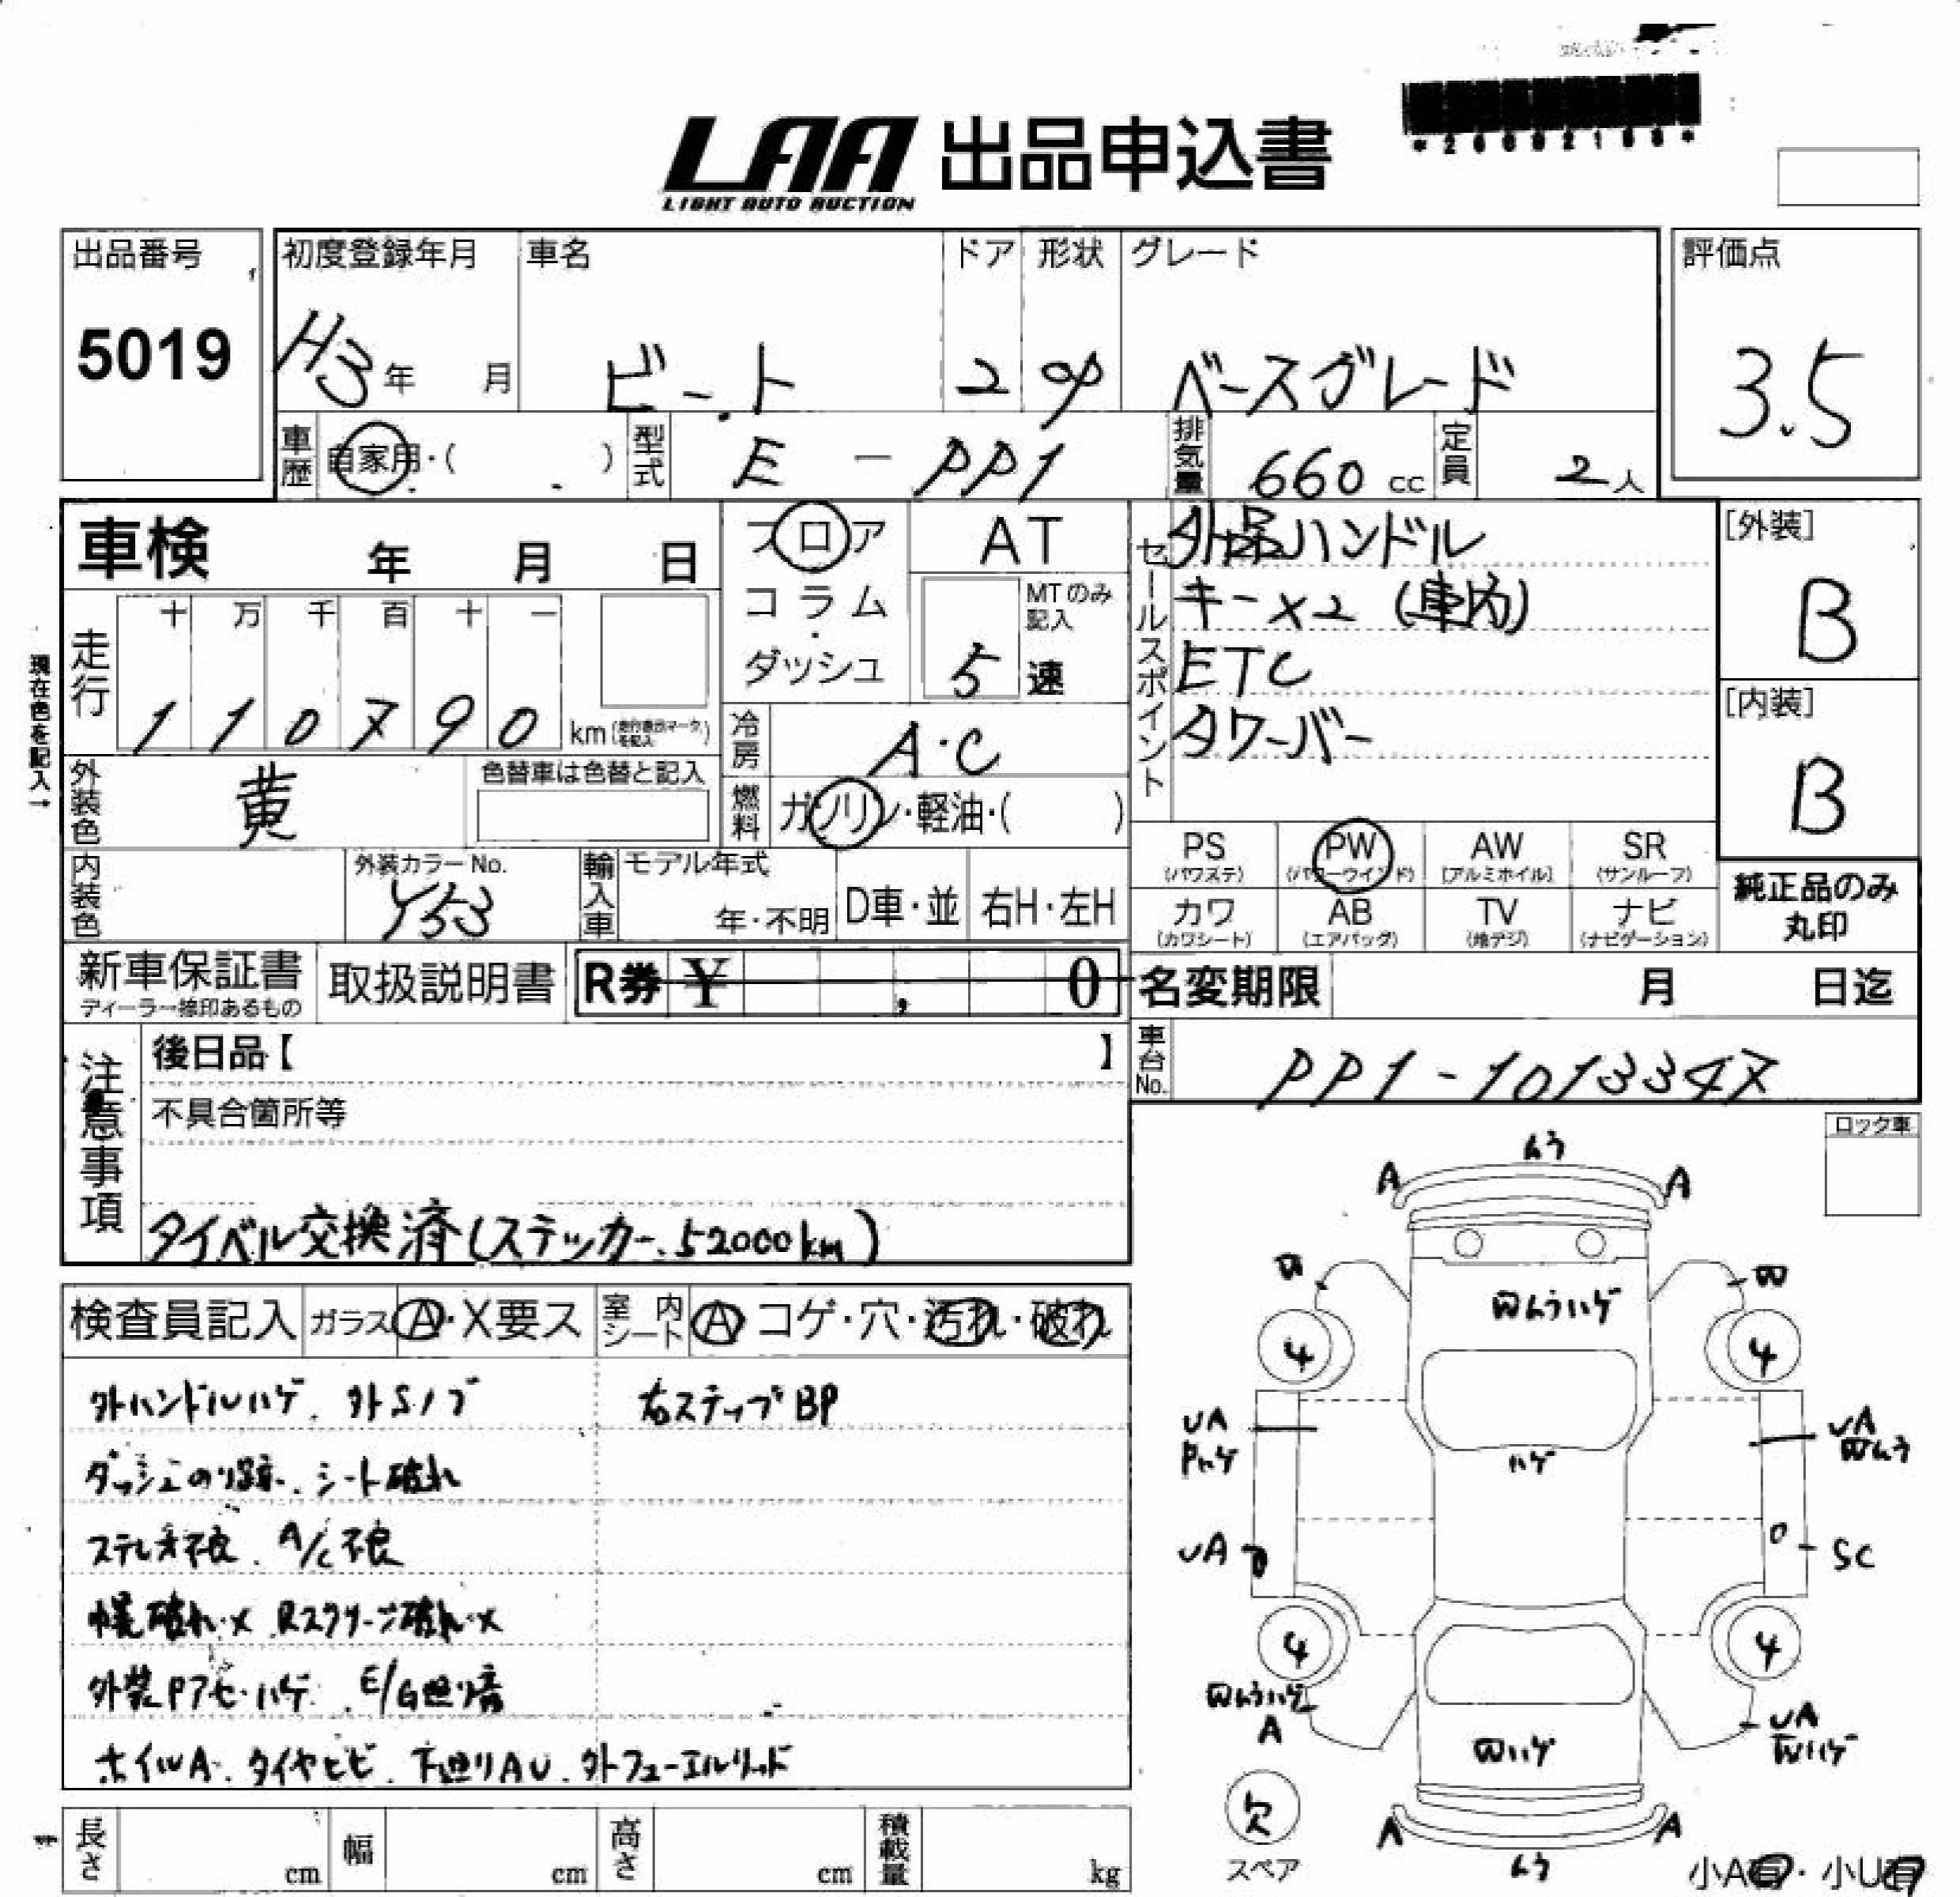 *20092156*
LAA 出品申込書
LIGHT AUTO AUCTION
出品番号 初度登録年月 車名 ドア 形状 グレード 評価点
5019 H3年 月 ビート 2 ベースグレード 3.5
車歴 自家用・( ) 型式 E - PP1 排気量 660 cc 定員 2人
車検 年 月 日
フロア AT
コラム MTのみ記入
ダッシュ 5 速
現在色を記入→
走行 十 万 千 百 十 一
1 1 0 7 9 0 km
冷房 A・C
セールスポイント
外品ハンドル
キー×2 (車内)
ETC
タワーバー
[外装]
B
[内装]
B
外装色 黄 色替車は色替と記入
燃料 ガソリン・軽油・( )
内装色 外装カラーNo. Y53
輸入車 モデル年式 年・不明 D車・並 右H・左H
PS (パワステ) PW (パワーウインド) AW (アルミホイル) SR (サンルーフ)
カワ (カワシート) AB (エアバッグ) TV (地デジ) ナビ (ナビゲーション)
純正品のみ
丸印
新車保証書 取扱説明書 R券 ¥ , 0 名変期限 月 日迄
ディーラー捺印あるもの
車台No. PP1-1013347
注意事項
後日品【 】
不具合箇所等
タイベル交換済(ステッカー.52000km)
ロック車
検査員記入 ガラス A・X要ス 室内シート A コゲ・穴・汚れ・破れ
外ハンドルハゲ. 外Sノブ 右ステップBP
ダッシュのり跡. シート破れ
ステレオ不良. A/C不良
幌破れ・× Rスクリーン破れ・×
外装Pアセ・ハゲ. E/G廻り音
ホイルA. タイヤヒビ. 下廻りAU. 外フューエルリッド
ムラ
A A
4 4
UA UA
ハゲ
UA SC
4 4
A UA
欠
スペア
A A
ムラ
小A有・小U有
長さ cm 幅 cm 高さ cm 積載量 kg